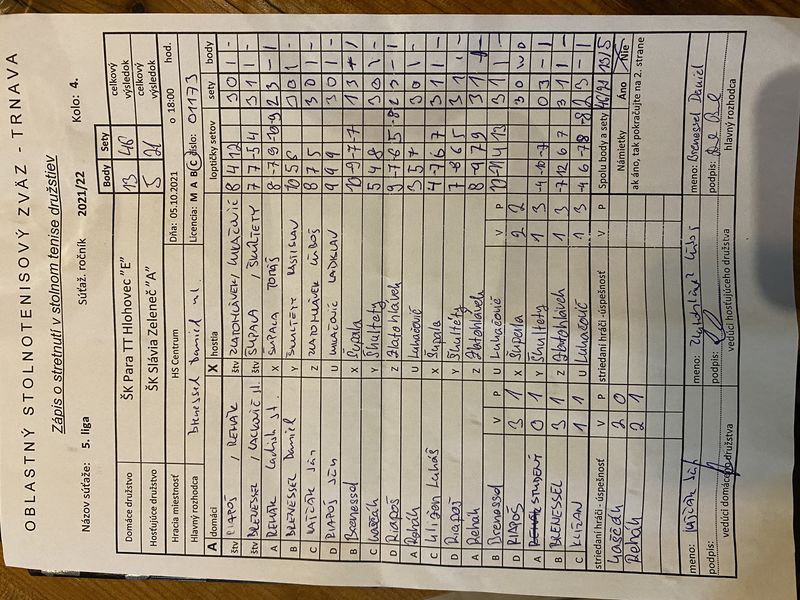 OBLASTNÝ STOLNOTENISOVÝ ZVÄZ - TRNAVA
Zápis o stretnutí v stolnom tenise družstiev
Názov súťaže: 5. liga Súťaž. ročník 2021/22 Kolo: 4.
Body Sety celkový výsledok celkový výsledok
Domáce družstvo ŠK Para TT Hlohovec "E" 13 46
Hosťujúce družstvo ŠK Slávia Zeleneč "A" 5 21
Hracia miestnosť HS Centrum Dňa: 05.10.2021 o 18:00 hod.
Hlavný rozhodca Brenessel Daniel ml. Licencia: M A B C číslo: 01173
A domáci X hostia loptičky setov sety body
štv PIAPOŠ / REHÁK štv ZLATOHLÁVEK / LUKAČOVIČ 8 4 12 3 0 1 -
štv BRENESSEL / štv ŠUPALA / ŠKULTÉTY 7 7 -5 4 3 1 1 -
A REHÁK Ladislav st. X ŠUPALA TOMÁŠ 2 3 - 1
B BRENESSEL Daniel Y ŠKULTÉTY RASTISLAV 10 5 6 3 0 1 -
C Ján Z ZLATOHLÁVEK ĽUBOŠ 8 7 5 3 0 1 -
D PIAPOŠ JÁN U LUKAČOVIČ LADISLAV 9 9 9 3 0 1 -
B Brenessel X Šupala 1 3 - 1
C Y Škultéty 5 4 8 3 0 1 -
D Piapoš Z Zlatohlávek 2 3 - 1
A Rehák U Lukačovič 3 5 7 3 0 1 -
C Klizan Lukáš X Šupala 4 -7 6 7 3 1 1 -
D Piapoš Y Škultéty 7 -8 6 5 3 1 1 -
A Rehák Z Zlatohlávek 8 -9 7 9 3 1 1 -
B Brenessel V P U Lukačovič V P 3 1 1 -
D PIAPOŠ 3 1 X Šupala 2 2 3 0
A ŠTUDENT 0 1 Y Škultéty 1 3 -4 -10 -7 0 3 - 1
B BRENESSEL 3 1 Z Zlatohlávek 1 3 -7 12 6 7 3 1 1 -
C KLIZAN 1 1 U Lukačovič 1 3 2 3 - 1
striedaní hráči -úspešnosť V P striedaní hráči -úspešnosť V P Spolu body a sety 46/21 13/5
2 0 Námietky Áno Nie
Rehák 2 1 ak áno, tak pokračujte na 2. strane
meno: Ján meno: Zlatohlávek Ľuboš meno: Brenessel Daniel
podpis: podpis: podpis:
vedúci domáceho družstva vedúci hosťujúceho družstva hlavný rozhodca